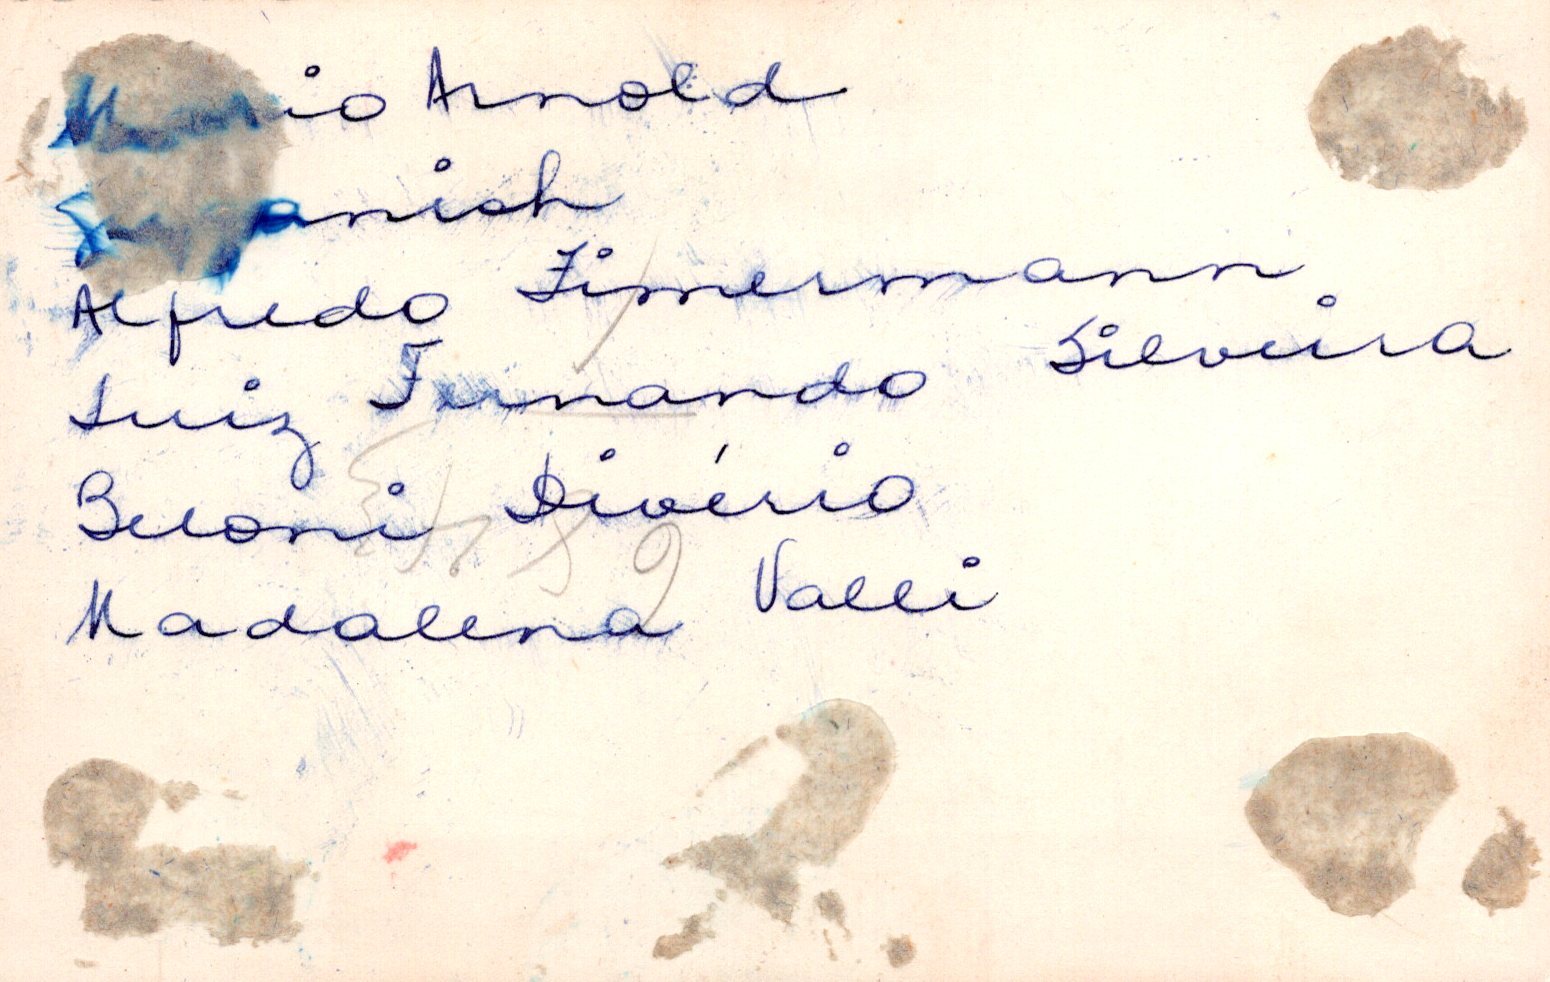 Mario Arnold
Alfredo Zimermann
Luiz Fernando Silveira
Beloni Divério
Madalena Valli